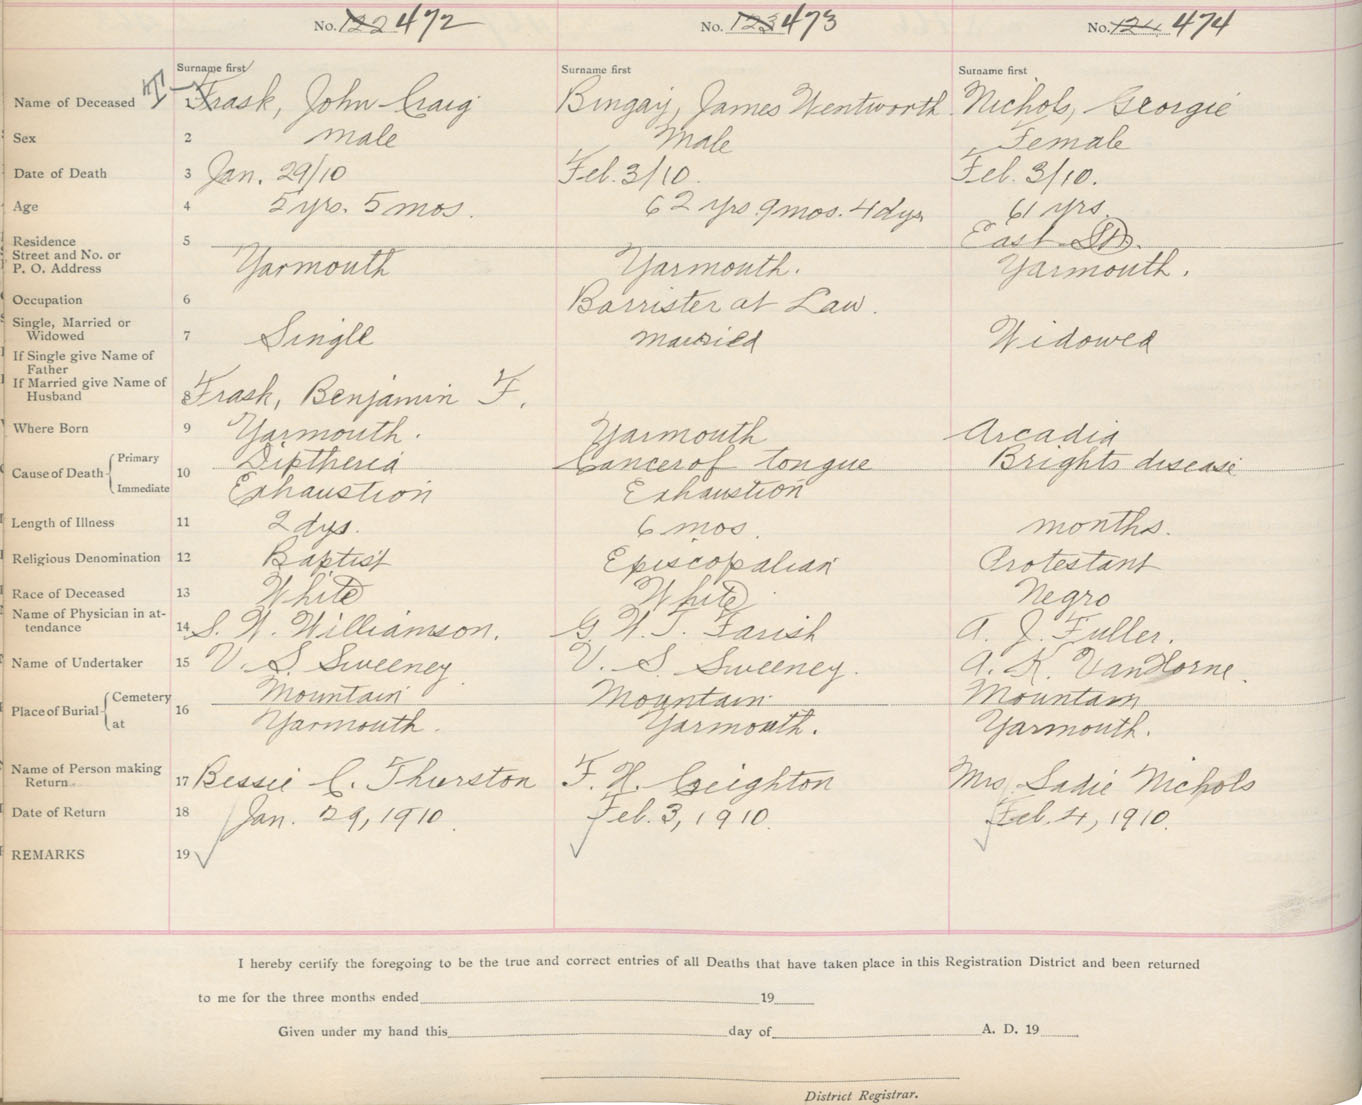 No. 122 472 No. 123 473 No. 124 474
Surname first Surname first Surname first
Name of Deceased 1 T Trask, John Craig Bingay, James Wentworth Nichols, Georgie
Sex 2 male Male Female
Date of Death 3 Jan. 29/10 Feb. 3/10. Feb. 3/10.
Age 4 5 yrs. 5 mos. 62 yrs 9 mos. 4 dys 61 yrs.
Residence 5 East St.
Street and No. or
P. O. Address Yarmouth Yarmouth. Yarmouth.
Occupation 6 Barrister at Law.
Single, Married or
Widowed 7 Single married Widowed
If Single give Name of
Father
If Married give Name of
Husband 8 Trask, Benjamin F.
Where Born 9 Yarmouth. Yarmouth Arcadia
Cause of Death Primary 10 Diptheria Cancer of tongue Brights disease
Immediate Exhaustion Exhaustion
Length of Illness 11 2 dys. 6 mos. months.
Religious Denomination 12 Baptist Episcopalian Protestant
Race of Deceased 13 White White Negro
Name of Physician in at-
tendance 14 S. W. Williamson. G. W. T. Farish A. J. Fuller.
Name of Undertaker 15 V. S. Sweeney V. S. Sweeney. A. K. VanHorne.
Place of Burial Cemetery 16 Mountain Mountain Mountain
at Yarmouth. Yarmouth. Yarmouth.
Name of Person making
Return 17 Bessie C. Thurston F. H. Creighton Mrs Sadie Nichols
Date of Return 18 Jan. 29, 1910. Feb. 3, 1910. Feb. 4, 1910.
REMARKS 19
I hereby certify the foregoing to be the true and correct entries of all Deaths that have taken place in this Registration District and been returned
to me for the three months ended 19
Given under my hand this day of A. D. 19
District Registrar.